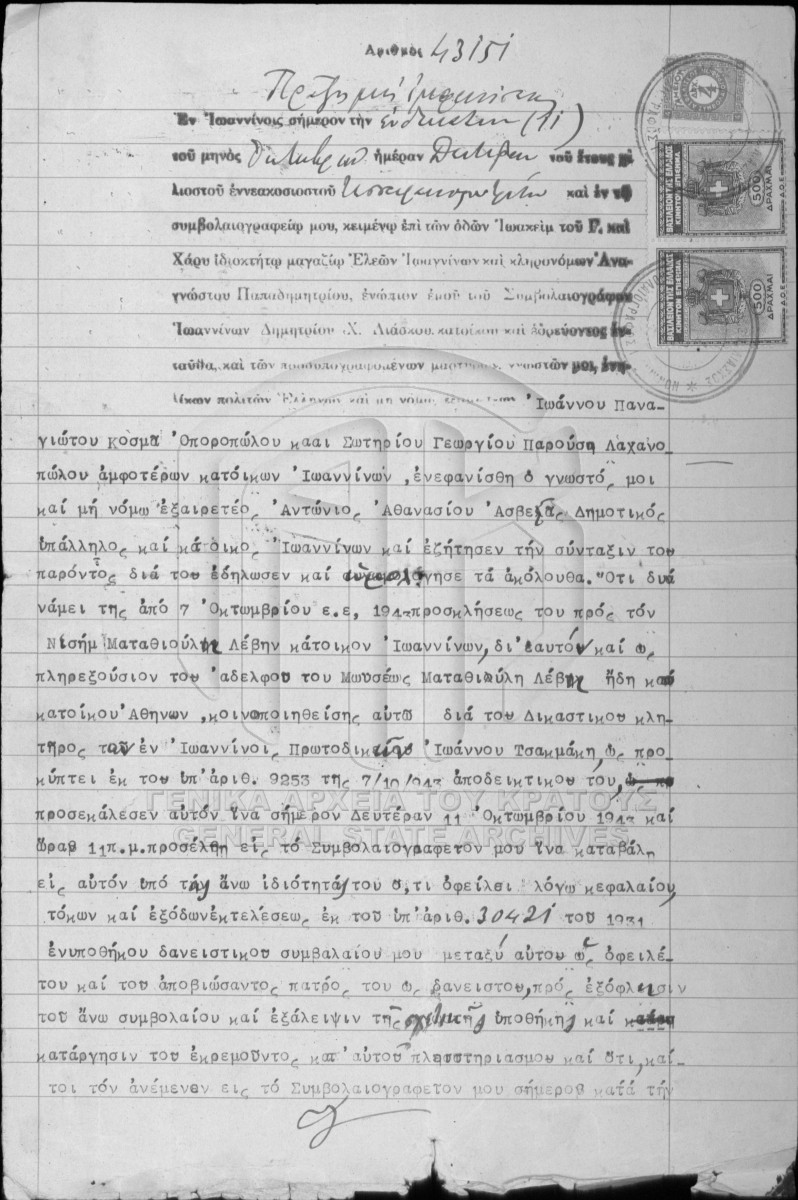 Αριθμός 43151
Πράξις μή ἐμφανίσεως
Ἐν Ἰωαννίνοις σήμερον τὴν ἑνδεκάτην (11)
τοῦ μηνὸς Ὀκτωβρίου ἡμέραν Δευτέραν τοῦ ἔτους χι
λιοστοῦ ἐννεακοσιοστοῦ τεσσαρακοστοῦ τρίτου καὶ ἐν τῷ
συμβολαιογραφείῳ μου, κειμένῳ ἐπὶ τῶν ὁδῶν Ἰωακεὶμ τοῦ Γ. καὶ
Χάρυ ἰδιοκτήτῳ μαγαζίῳ Ἐλεῶν Ἰωαννίνων καὶ κληρονόμων Ἀνα-
γνώστου Παπαδημητρίου, ἐνώπιον ἐμοῦ τοῦ Συμβολαιογράφου
Ἰωαννίνων Δημητρίου Χ. Λιάσκου κατοίκου καὶ ἑδρεύοντος ἐν-
ταῦθα, καὶ τῶν προσυπογραφομένων μαρτύρων, γνωστῶν μοι, ἐνη-
λίκων πολιτῶν Ἑλλήνων καὶ μὴ νόμῳ Ἰωάννου Πανα-
γιώτου κοσμᾶ Ὀποροπώλου κααι Σωτηρίου Γεωργίου Παρούση Λαχανο-
πώλου ἀμφοτέρων κατόικων Ἰωαννίνων ,ἐνεφανίσθη ὁ γνωστός μοι
καί μή νόμῳ ἐξαιρετέος Ἀντώνιος Ἀθανασίου Ἀσβεςᾶς Δημοτικός
ὑπάλληλος καί κάτοικος Ἰωαννίνων καί ἐζήτησεν τήν σύνταξιν του
παρόντος διά του ἐδήλωσεν καί ὡμολόγησε τά ἀκόλουθα. Ὅτι δυά
νάμει της ἀπό 7 Ὀκτωμβρίου ε.ε, 1943προσκλήσεως του πρός τόν
Νισήμ Ματαθιούλη Λέβην κάτοικον Ἰωαννίνων, δι'ἑαυτόν καί ὡς
πληρεξούσιον του ἀδελφου του Μωυσέως Ματαθιούλη Λέβη ἤδη και
κατοίκου Ἀθηνων ,κοινοποιηθείσης αὐτῶ διά του Δικαστικου κλη-
τῆρος τῶν ἐν Ἰωαννίνοις Πρωτοδικῶν Ἰωάννου Τσακμάκη, ὡς προ-
κύπτει ἐκ του ὑπ'ἀριθ. 9253 της 7/10/943 ἀποδεικτικου του, ὡς πρ
προσεκάλεσεν αὐτόν ἵνα σήμερον Δευτέραν 11 Ὀκτωμβρίου 1943 καί
ὥραν 11π.μ.προσέλθη εἰς τό Συμβολαιογραφεῖον μου ἵνα καταβάλη
εἰς αὐτόν ὑπό τάς ἄνω ἰδιότητάς του ὅ,τι ὀφείλει λόγω κεφαλαίου,
τόκων καί ἐξόδωνἐκτελέσεως ἐκ του ὑπ'ἀριθ. 30421 του 1931
ἐνυποθήκου δανειστικου συμβαλαίου μου μεταξύ αὐτου ὡς ὀφειλέ-
του καί του ἀποβιώσαντος πατρός του ὡς δανειστου,πρός ἐξόφλησιν
του ἄνω συμβολαίου καί ἐξάλειψιν της σχετικῆς ὑποθήκης καί
κατάργησιν του ἐκρεμοῦντος κατ'αὐτου πλειστηριασμου καί ὅτι, καί-
τοι τόν ἀνέμενεν εἰς τό Συμβολαιογραφεῖον μου σήμερον κατά τήν
ΒΑΣΙΛΕΙΟΝ ΤΗΣ ΕΛΛΑΔΟΣ
ΚΙΝΗΤΟΝ ΕΠΙΣΗΜΑ
500 ΔΡΑΧΜΑΙ
Δ.Ο.Ε.
ΒΑΣΙΛΕΙΟΝ ΤΗΣ ΕΛΛΑΔΟΣ
ΚΙΝΗΤΟΝ ΕΠΙΣΗΜΑ
500 ΔΡΑΧΜΑΙ
Δ.Ο.Ε.
ΓΕΝΙΚΑ ΑΡΧΕΙΑ ΤΟΥ ΚΡΑΤΟΥΣ
GENERAL STATE ARCHIVES